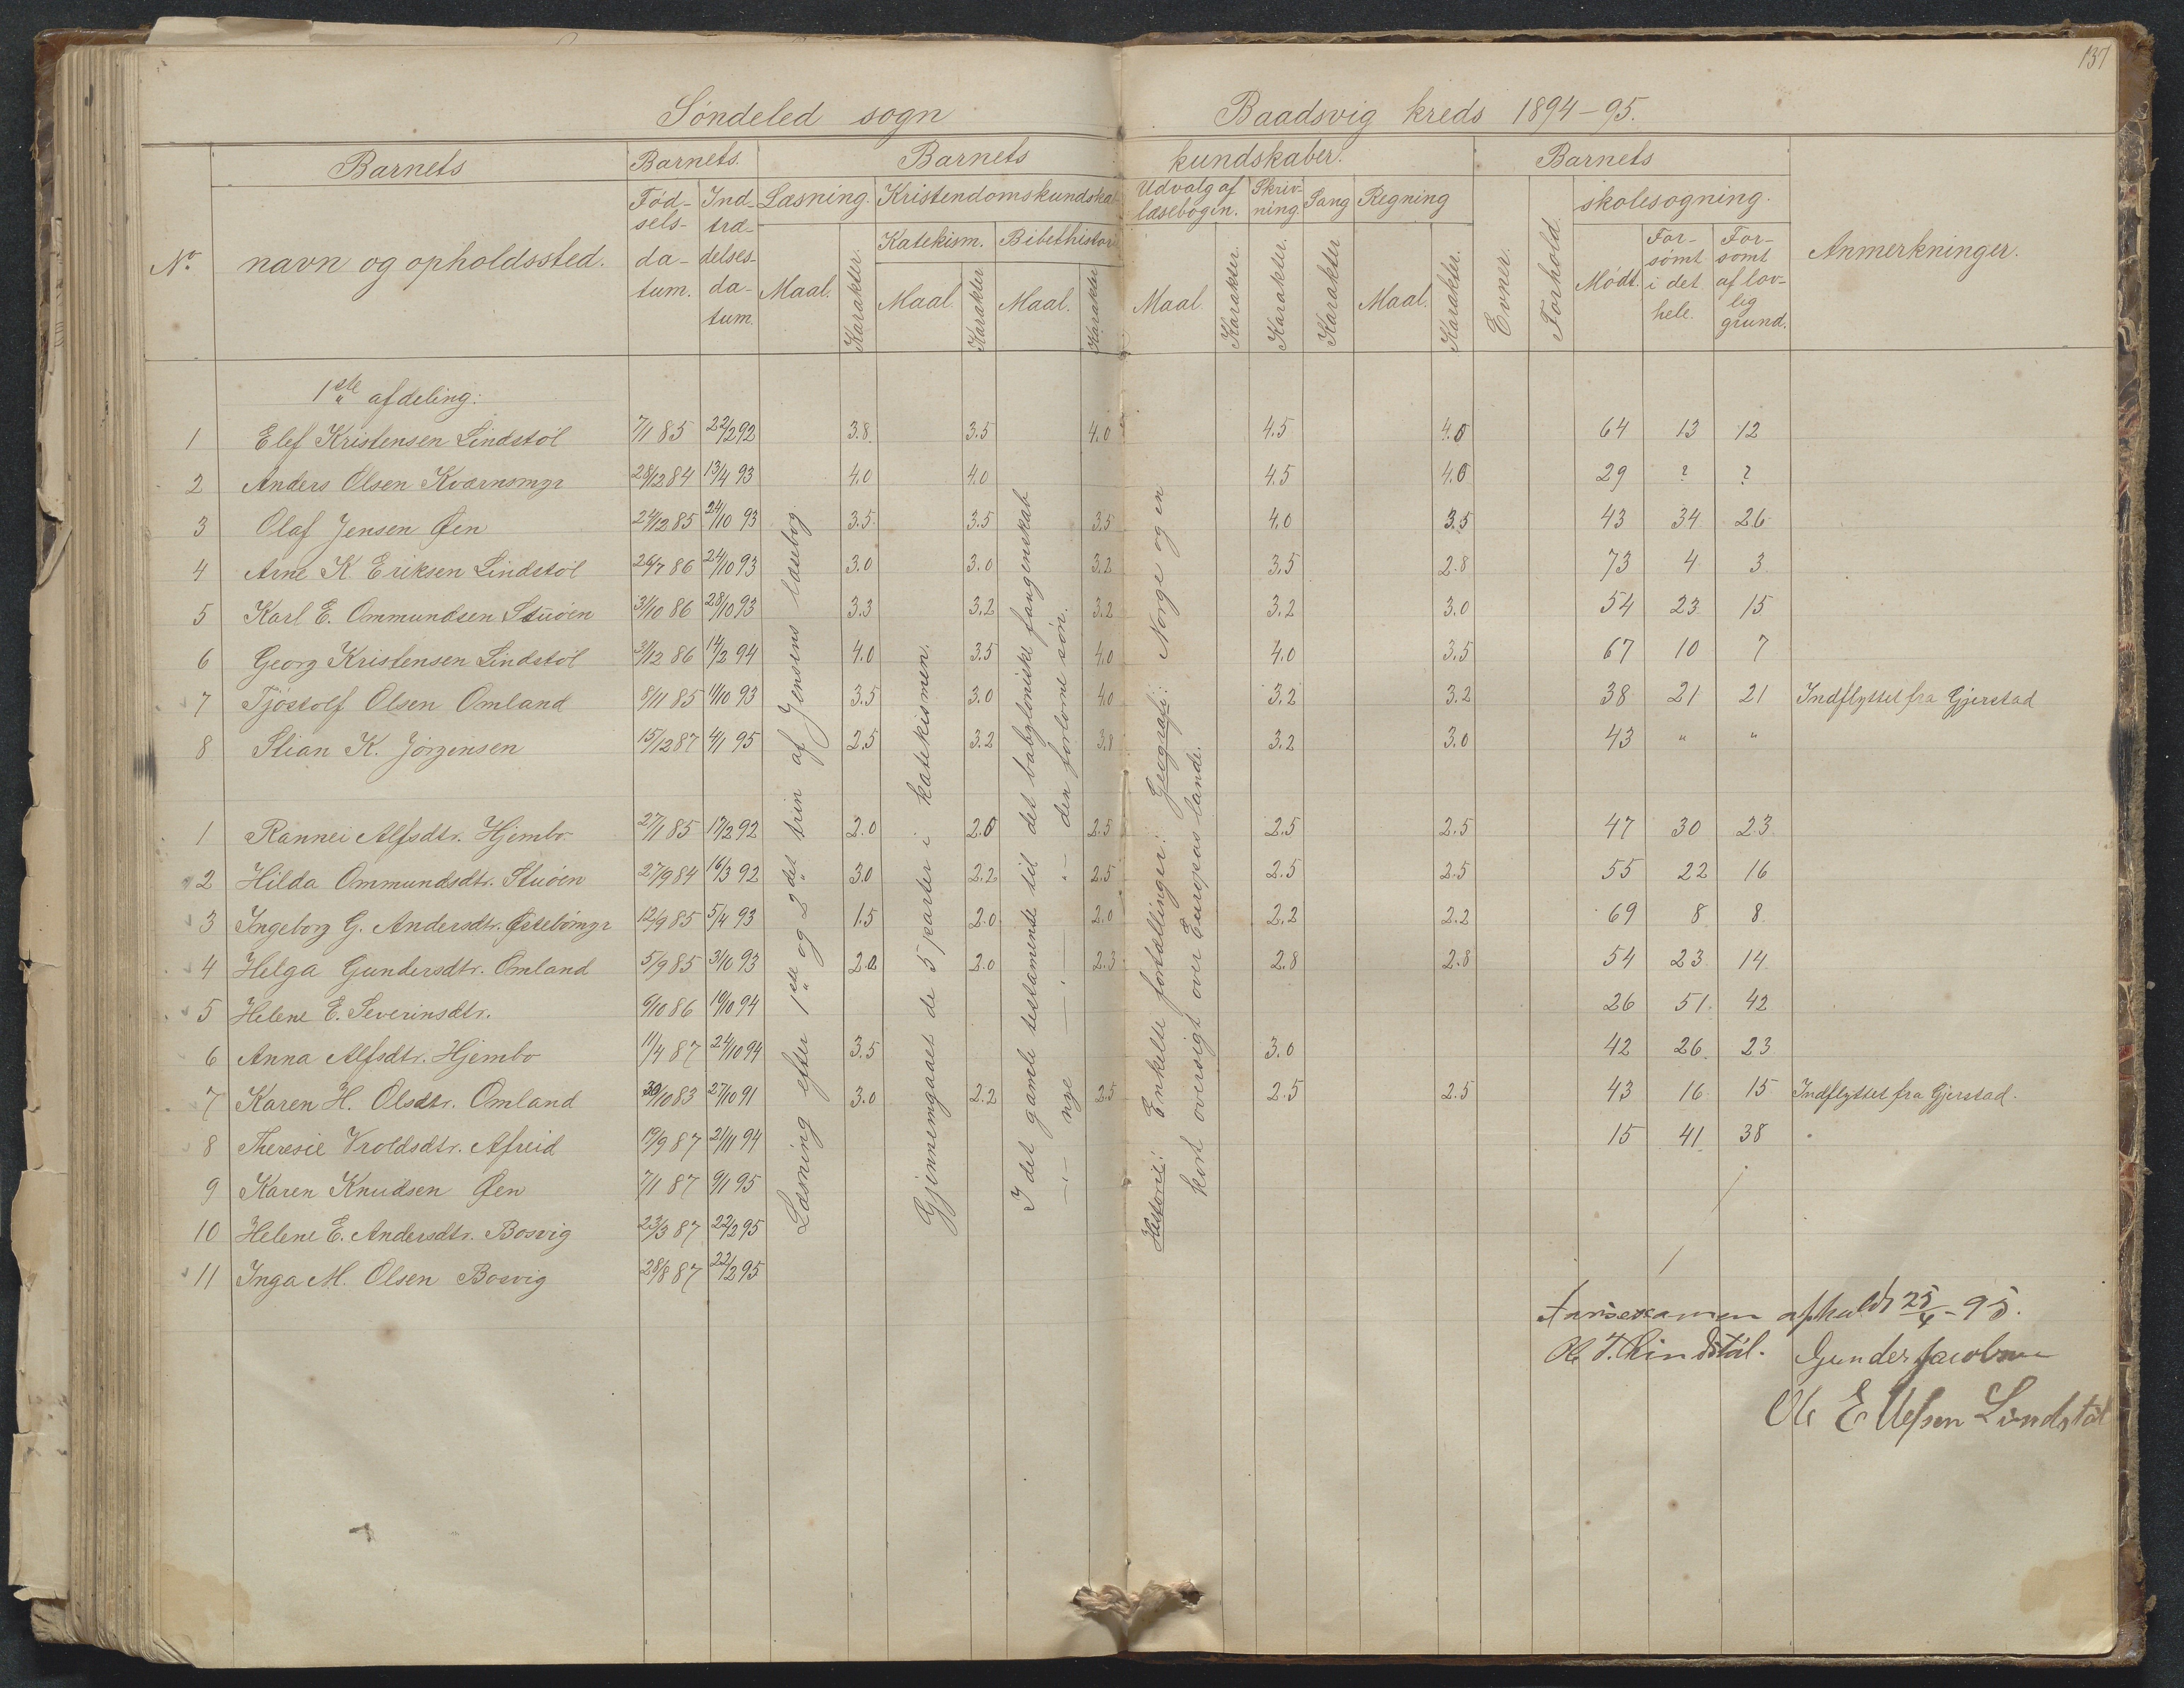 137
Søndeled sogn Baadsvig kreds 1894-95.
Barnets Barnets. Barnets kundskaber. Barnets
No. navn og opholdssted. Fødselsdatum. Indtrædelsesdatum. Læsning. Kristendomskundskab Udvalg af læsebogen. Skrivning. Sang Regning Evner. Forhold. skolesøgning. Anmerkninger.
Katekism. Bibelhistorie
Maal. Karakter. Maal. Karakter. Maal. Karakter Maal. Karakter. Karakter. Karakter Maal. Karakter. Mødt. Forsømt i det hele. Forsømt af lovlig grund.
1ste afdeling:
1 Elef Kristensen Lindstøl 7/1 85 22/2 92 3.8. 3.5 4.0 4.5 4.0 64 13 12
2 Anders Olsen Kværnsmyr 28/12 84 13/4 93 4.0 4.0 4.5 4.0 29 ? ?
3 Olaf Jensen Øen 24/12 85 24/10 93 3.5 3.5 3.5 4.0 3.5 43 34 26
4 Arne K. Eriksen Lindstøl 26/7 86 24/10 93 3.0 3.0 3.2 3.5 2.8 73 4 3
5 Karl E. Ommundsen Stuøen 31/10 86 28/10 93 3.3 3.2 3.2 3.2 3.0 54 23 15
6 Georg Kristensen Lindstøl 31/12 86 14/2 94 4.0 3.5 4.0 4.0 3.5 67 10 7
7 Tjøstolf Olsen Omland 8/11 85 11/10 93 3.5 3.0 4.0 3.2 3.2 38 21 21 Indflyttet fra Gjerstad
8 Stian K. Jørgensen 15/12 87 4/1 95 2.5 3.2 3.8 3.2 3.0 43 " "
1 Rannei Alfsdtr. Hjembo 27/1 85 17/2 92 2.0 2.0 2.5 2.5 2.5 47 30 23
2 Hilda Ommundsdtr. Stuøen 27/9 84 16/3 92 3.0 2.2 2.5 2.5 2.5 55 22 16
3 Ingeborg G. Andersdtr. Østebømyr 12/9 85 5/4 93 1.5 2.0 2.0 2.2 2.2 69 8 8
4 Helga Gundersdtr. Omland 5/9 85 3/10 93 2.0 2.0 2.3 2.8 2.8 54 23 14
5 Helene E. Severinsdtr. 6/10 86 19/10 94 26 51 42
6 Anna Alfsdtr. Hjembo 11/4 87 24/10 94 3.5 3.0 42 26 23
7 Karen H. Olsdtr. Omland 30/10 83 27/10 91 3.0 2.2 2.5 2.5 2.5 43 16 15 Indflyttet fra Gjerstad.
8 Theresie Vroldsdtr. Afreid 19/9 87 21/11 94 15 41 38
9 Karen Knudsen Øen 7/1 87 9/1 95
10 Helene E. Andersdtr. Bosvig 23/3 87 22/2 95
11 Inga M. Olsen Bosvig 28/8 87 22/2 95
Læsning efter 1ste og 2det trin af Jensens læsebog
Gjennemgaaet de 5 parter i katekismen.
I det gamle testamente til det babyloniske fangenskab
–"– nye –"– –"– den forlorne søn.
Historie: Enkelte fortællinger. Geografi: Norge og en
kort oversigt over Europas lande.
Aarsexamen afholdt 25/4-95.
Ole T. Lindstøl. Gunder Jacobsen
Ole Ellefsen Lindstøl